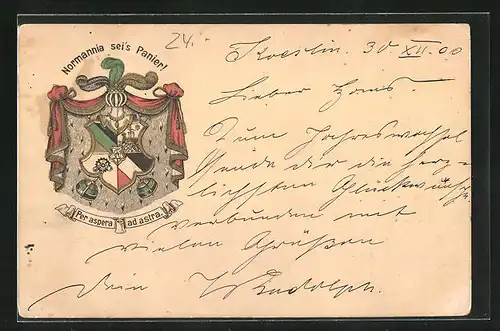 Normannia sei's Panier!
24.
Koeslin. 30 XII. 00
Lieber Hans.
Zum Jahreswechsel
sende dir die herz-
lichsten Glückwünsche
verbunden mit
vielen Grüßen
Dein W Rudolph.
Per aspera ad astra.